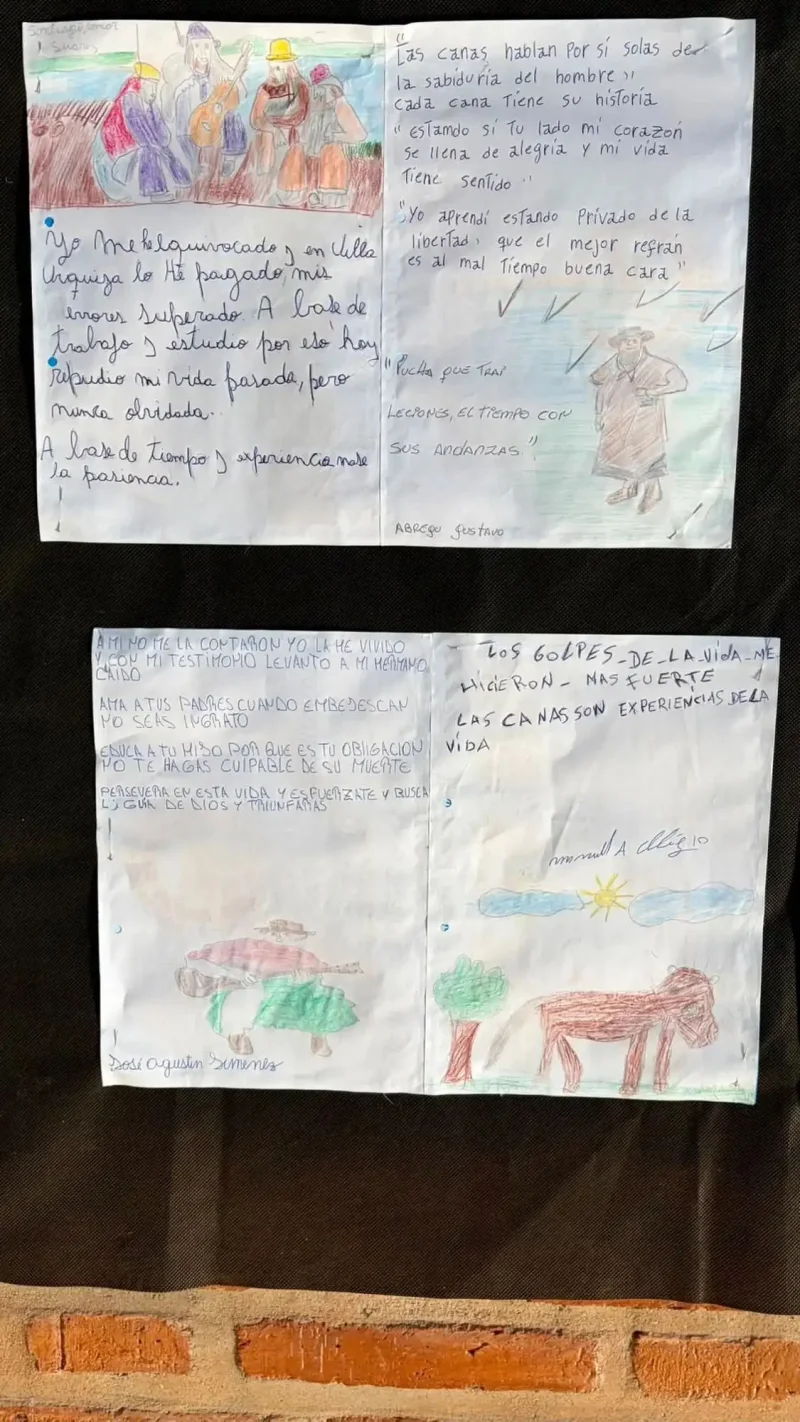 Suarez
Yo me he equivocado y en Villa
Urquiza lo He pagado, mis
errores superado. A base de
trabajo y estudio por eso hoy
repudio mi vida pasada, pero
nunca olvidada..
A base de tiempo y experiencia nase
la pasiencia.
"Las canas hablan por sí solas de
la sabiduría del hombre"
cada cana tiene su historia
"Estamdo sí tu lado mi corazón
se llena de alegría y mi vida
tiene sentido"
"Yo aprendí estando privado de la
libertad, que el mejor refrán
es al mal tiempo buena cara"
"Pucha que trae
lecciones, el tiempo con
sus andanzas."
Abregu Gustavo
A MI NO ME LA CONTARON YO LA HE VIVIDO
Y CON MI TESTIMONIO LEVANTO A MI HERMANO
CAIDO
AMA A TUS PADRES CUANDO EMBEJESCAN
NO SEAS INGRATO
EDUCA A TU HIJO POR QUE ES TU OBLIGACION
NO TE HAGAS CULPABLE DE SU MUERTE
PERSEVERA EN ESTA VIDA Y ESFUERZATE Y BUSCA
LA GUIA DE DIOS Y TRIUNFARAS
José Agustin Simenez
- LOS GOLPES - DE - LA - VIDA - ME
HICIERON - MAS FUERTE
LAS CANAS SON EXPERIENCIAS DE LA
VIDA